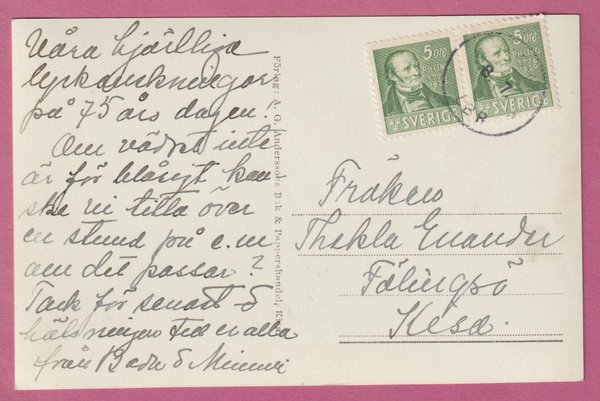 Våra hjärtliga
lyckönskningar
på 75 års dagen!
Om vädret inte
är för blåsigt kan
ske vi titta över
en stund på e.m
om det passar?
Tack för senast &
hälsningen till er alla
från Bodu & Mimmi
Förlag: A. G. Anderssons Bok & Pappershandel, K
5 ÖRE
P.H. LING
1776
SVERIGE
5 ÖRE
P.H. LING
1776
SVERIGE
8 7
Fröken
Thekla Enander
Fölingsö
Kisa.